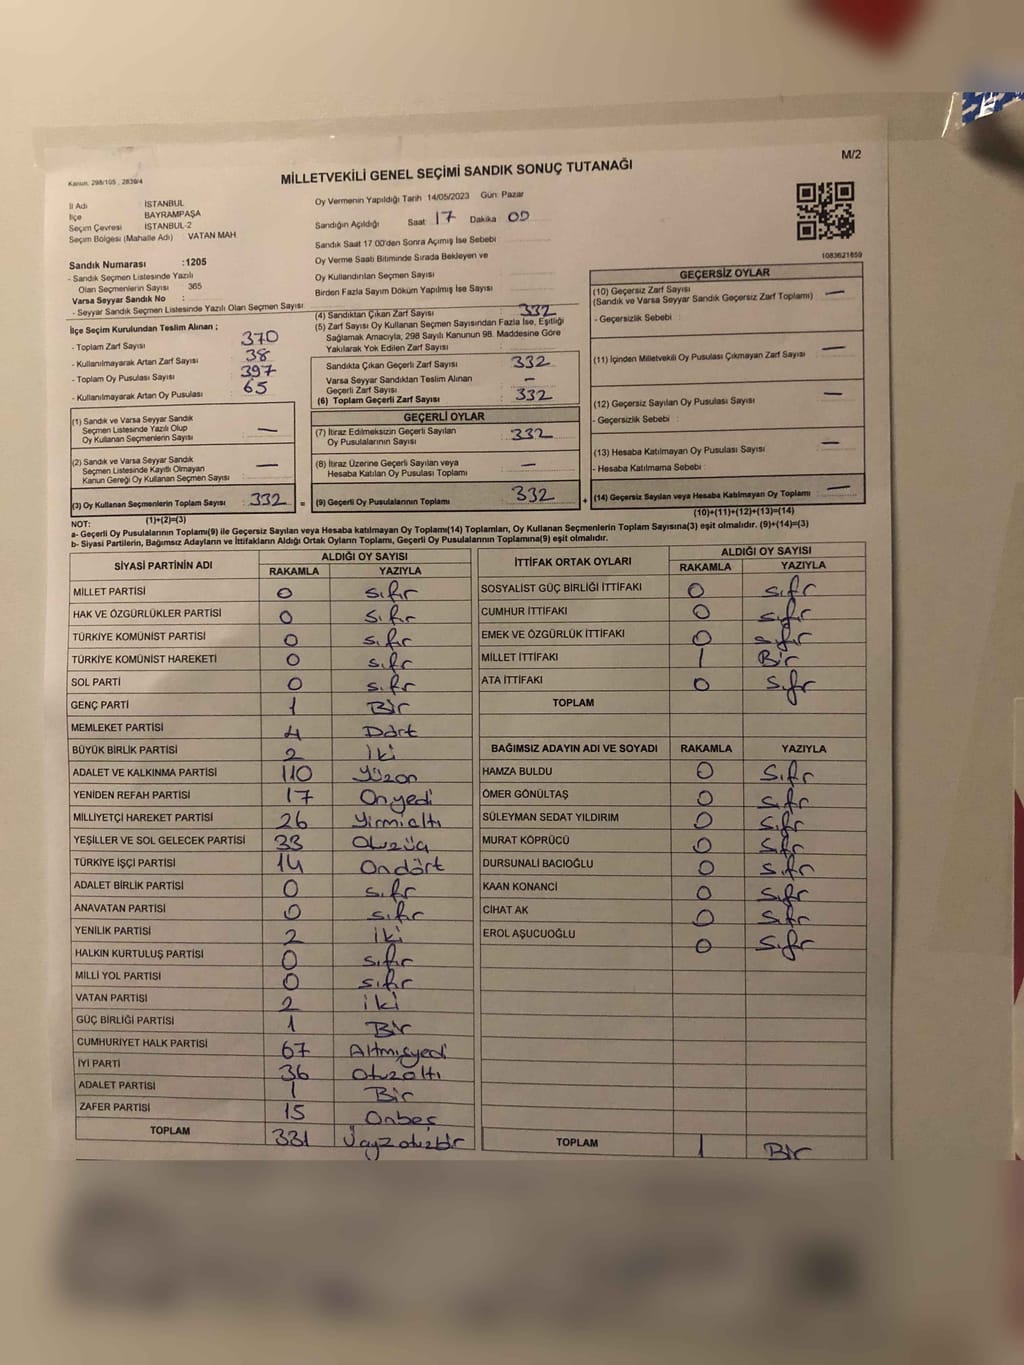 M/2
Kanun. 298/105 , 2839/4
MİLLETVEKİLİ GENEL SEÇİMİ SANDIK SONUÇ TUTANAĞI
İl Adı İSTANBUL
İlçe BAYRAMPAŞA
Seçim Çevresi İSTANBUL-2
Seçim Bölgesi (Mahalle Adı) : VATAN MAH
Oy Vermenin Yapıldığı Tarih 14/05/2023 Gün: Pazar
Sandığın Açıldığı Saat 17 Dakika 00
Sandık Saat 17.00'den Sonra Açımış İse Sebebi
Oy Verme Saati Bitiminde Sırada Bekleyen ve
Oy Kullandırılan Seçmen Sayısı
Birden Fazla Sayım Döküm Yapılmış İse Sayısı
1083621659
Sandık Numarası :1205
- Sandık Seçmen Listesinde Yazılı
Olan Seçmenlerin Sayısı 365
Varsa Seyyar Sandık No :
- Seyyar Sandık Seçmen Listesinde Yazılı Olan Seçmen Sayısı:
İlçe Seçim Kurulundan Teslim Alınan ;
- Toplam Zarf Sayısı : 370
- Kullanılmayarak Artan Zarf Sayısı : 38
- Toplam Oy Pusulası Sayısı : 397
- Kullanılmayarak Artan Oy Pusulası : 65
(1) Sandık ve Varsa Seyyar Sandık
Seçmen Listesinde Yazılı Olup
Oy Kullanan Seçmenlerin Sayısı —
(2) Sandık ve Varsa Seyyar Sandık
Seçmen Listesinde Kayıtlı Olmayan
Kanun Gereği Oy Kullanan Seçmen Sayısı —
(3) Oy Kullanan Seçmenlerin Toplam Sayısı 332 =
(1)+(2)=(3)
(4) Sandıktan Çıkan Zarf Sayısı : 332
(5) Zarf Sayısı Oy Kullanan Seçmen Sayısından Fazla İse, Eşitliği
Sağlamak Amacıyla, 298 Sayılı Kanunun 98. Maddesine Göre
Yakılarak Yok Edilen Zarf Sayısı :
Sandıkta Çıkan Geçerli Zarf Sayısı : 332
Varsa Seyyar Sandıktan Teslim Alınan
Geçerli Zarf Sayısı : —
(6) Toplam Geçerli Zarf Sayısı : 332
GEÇERLİ OYLAR
(7) İtiraz Edilmeksizin Geçerli Sayılan
Oy Pusulalarının Sayısı : 332
(8) İtiraz Üzerine Geçerli Sayılan veya
Hesaba Katılan Oy Pusulası Toplamı : —
(9) Geçerli Oy Pusulalarının Toplamı 332 +
GEÇERSİZ OYLAR
(10) Geçersiz Zarf Sayısı
(Sandık ve Varsa Seyyar Sandık Geçersiz Zarf Toplamı) : —
- Geçersizlik Sebebi :
(11) İçinden Milletvekili Oy Pusulası Çıkmayan Zarf Sayısı : —
(12) Geçersiz Sayılan Oy Pusulası Sayısı : —
- Geçersizlik Sebebi :
(13) Hesaba Katılmayan Oy Pusulası Sayısı : —
- Hesaba Katılmama Sebebi :
(14) Geçersiz Sayılan veya Hesaba Katılmayan Oy Toplamı : —
(10)+(11)+(12)+(13)=(14)
NOT:
a- Geçerli Oy Pusulalarının Toplamı(9) ile Geçersiz Sayılan veya Hesaba katılmayan Oy Toplamı(14) Toplamları, Oy Kullanan Seçmenlerin Toplam Sayısına(3) eşit olmalıdır. (9)+(14)=(3)
b- Siyasi Partilerin, Bağımsız Adayların ve İttifakların Aldığı Ortak Oyların Toplamı, Geçerli Oy Pusulalarının Toplamına(9) eşit olmalıdır.
SİYASİ PARTİNİN ADI ALDIĞI OY SAYISI
RAKAMLA YAZIYLA
MİLLET PARTİSİ 0 sıfır
HAK VE ÖZGÜRLÜKLER PARTİSİ 0 sıfır
TÜRKİYE KOMÜNİST PARTİSİ 0 sıfır
TÜRKİYE KOMÜNİST HAREKETİ 0 sıfır
SOL PARTİ 0 sıfır
GENÇ PARTİ 1 Bir
MEMLEKET PARTİSİ 4 Dört
BÜYÜK BİRLİK PARTİSİ 2 iki
ADALET VE KALKINMA PARTİSİ 110 Yüzon
YENİDEN REFAH PARTİSİ 17 Onyedi
MİLLİYETÇİ HAREKET PARTİSİ 26 Yirmialtı
YEŞİLLER VE SOL GELECEK PARTİSİ 33 Otuzüç
TÜRKİYE İŞÇİ PARTİSİ 14 Ondört
ADALET BİRLİK PARTİSİ 0 sıfır
ANAVATAN PARTİSİ 0 sıfır
YENİLİK PARTİSİ 2 iki
HALKIN KURTULUŞ PARTİSİ 0 sıfır
MİLLİ YOL PARTİSİ 0 sıfır
VATAN PARTİSİ 2 iki
GÜÇ BİRLİĞİ PARTİSİ 1 Bir
CUMHURİYET HALK PARTİSİ 67 Altmışyedi
İYİ PARTİ 36 Otuzaltı
ADALET PARTİSİ 1 Bir
ZAFER PARTİSİ 15 Onbeş
TOPLAM 331 Üçyüzotuzbir
İTTİFAK ORTAK OYLARI ALDIĞI OY SAYISI
RAKAMLA YAZIYLA
SOSYALİST GÜÇ BİRLİĞİ İTTİFAKI 0 sıfır
CUMHUR İTTİFAKI 0 sıfır
EMEK VE ÖZGÜRLÜK İTTİFAKI 0 sıfır
MİLLET İTTİFAKI 1 Bir
ATA İTTİFAKI 0 sıfır
TOPLAM
BAĞIMSIZ ADAYIN ADI VE SOYADI RAKAMLA YAZIYLA
HAMZA BULDU 0 Sıfır
ÖMER GÖNÜLTAŞ 0 Sıfır
SÜLEYMAN SEDAT YILDIRIM 0 Sıfır
MURAT KÖPRÜCÜ 0 Sıfır
DURSUNALİ BACIOĞLU 0 Sıfır
KAAN KONANCİ 0 Sıfır
CİHAT AK 0 Sıfır
EROL AŞUCUOĞLU 0 Sıfır
TOPLAM 1 Bir